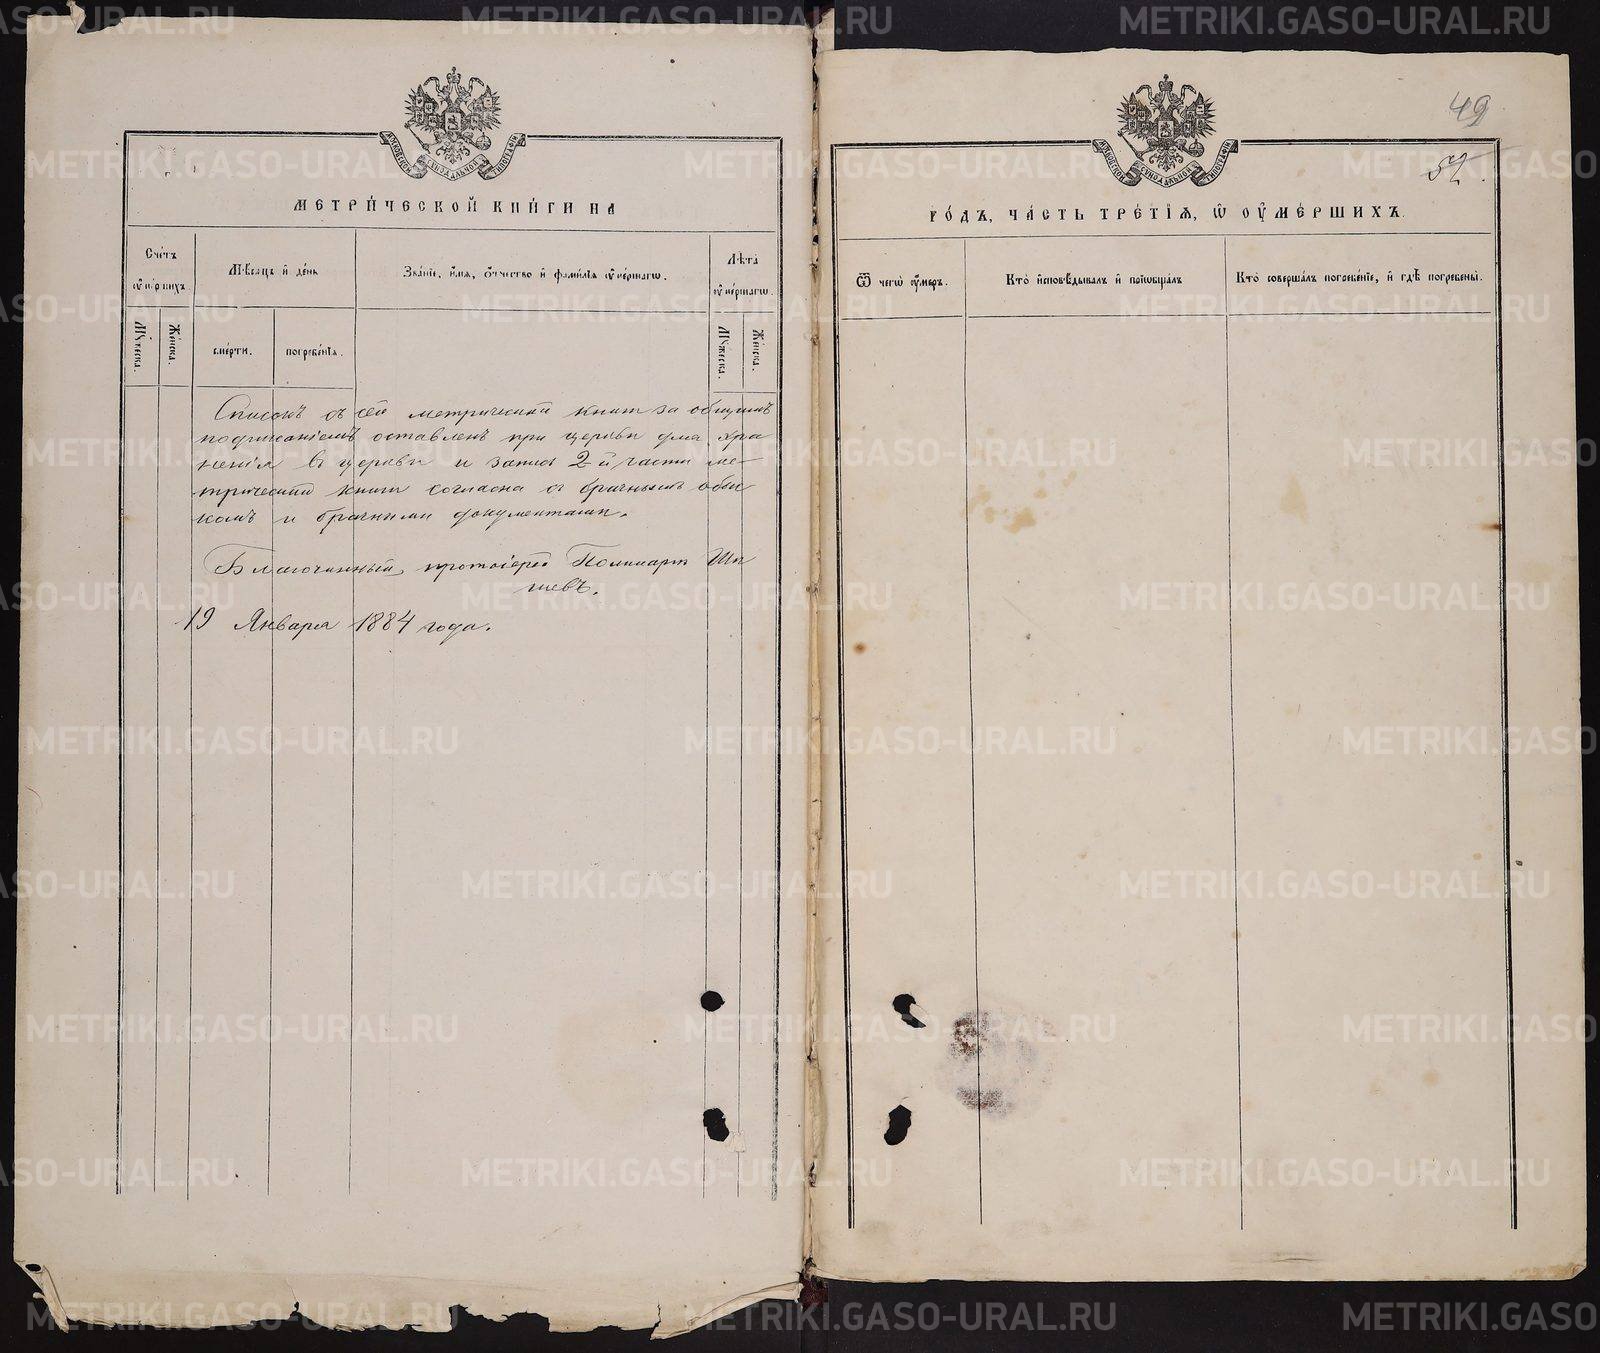 49
52
МОСКОВСКОЙ СѴНОДАЛЬНОЙ ТИПОГРАФІИ
МЕТРИ́ЧЕСКОЙ КНИ́ГИ НА
Сче́тъ ᲂу҆ме́ршихъ.
Мѣ́сяцъ и҆ де́нь
Зва́нїе, и҆́мѧ, ѻ҆́тчество и҆ фами́лїѧ ᲂу҆ме́ршагѡ.
Лѣ́та ᲂу҆ме́ршагѡ.
Мꙋ́жеска.
Же́нска.
сме́рти.
погребе́нїѧ.
Мꙋ́жеска.
Же́нска.
Списокъ съ сей метрической книги за общимъ
подписаніемъ оставленъ при церкви для хра
ненія въ церкви и запись 2й части ме-
трической книги согласна съ брачнымъ обы
комъ и брачными документами.
Благочинный, протоіерей Поликарпъ
19 Января 1884 года.
МОСКОВСКОЙ СѴНОДАЛЬНОЙ ТИПОГРАФІИ
ГО́ДЪ, ЧА́СТЬ ТРЕ́ТІѦ, Ѡ҆ ОУ҆МЕ́РШИХЪ.
Ѿ чегѡ̀ ᲂу҆́меръ.
Кто̀ и҆сповѣ́дывалъ и҆ прїѡбща́лъ
Кто̀ соверша́лъ погребе́нїе, и҆ гдѣ̀ погребены̀.
METRIKI.GASO-URAL.RU